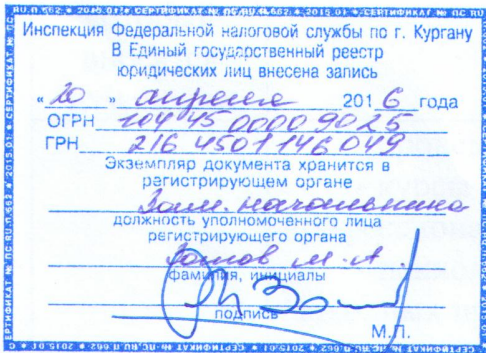 RU.П.662 * 2015.01 * СЕРТИФИКАТ № ПС.RU.П.662 * 2015.01 * СЕРТИФИКАТ № ПС.RU
Инспекция Федеральной налоговой службы по г. Кургану
В Единый государственный реестр
юридических лиц внесена запись
« 20 » апреля 2016 года
ОГРН 1044500009025
ГРН 2164501146049
Экземпляр документа хранится в
регистрирующем органе
Зам. начальника
должность уполномоченного лица
регистрирующего органа
М.А.
фамилия, инициалы
подпись
М.П.